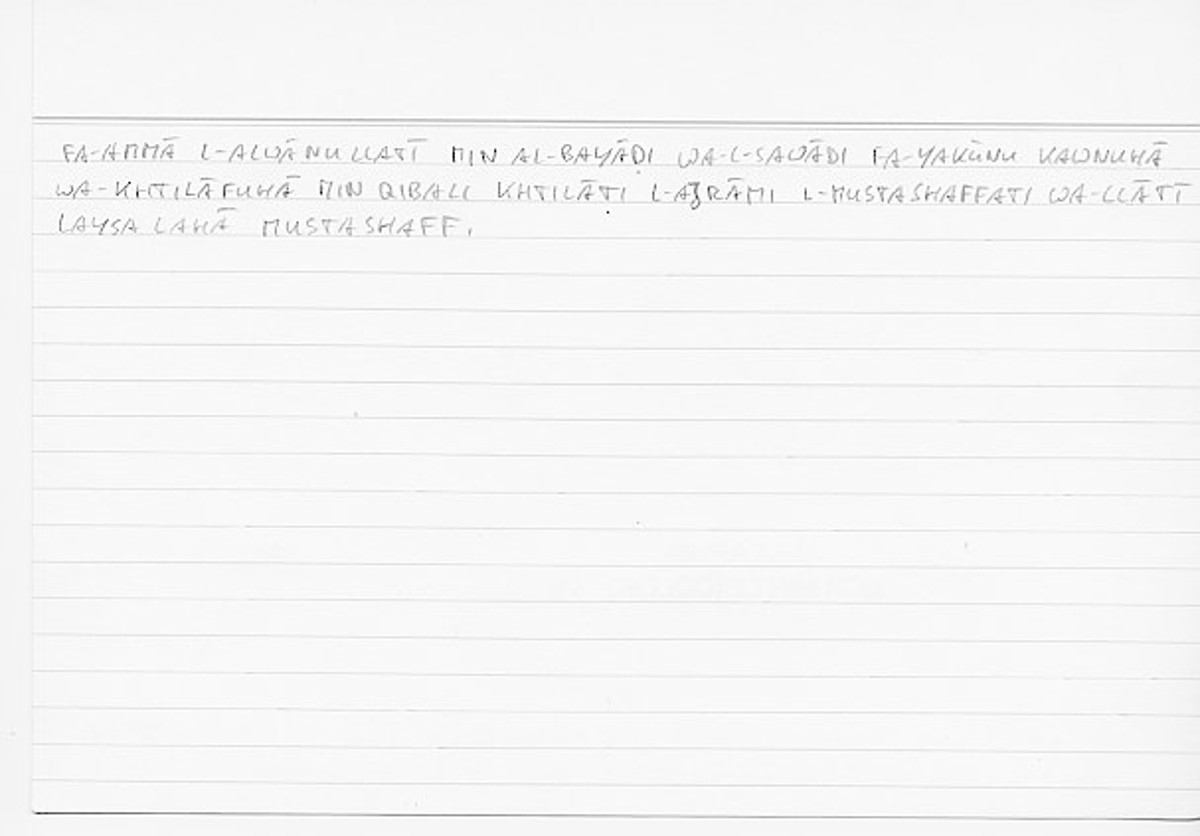 FA-AMMĀ L-ALWĀNU LLATĪ MIN AL-BAYĀḌI WA-L-SAWĀDI FA-YAKŪNU KAWNUHĀ
WA-KHTILĀFUHĀ MIN QIBALI KHTILĀṬI L-AǦRĀMI L-MUSTASHAFFATI WA-LLĀTĪ
LAYSA LAHĀ MUSTASHAFF.